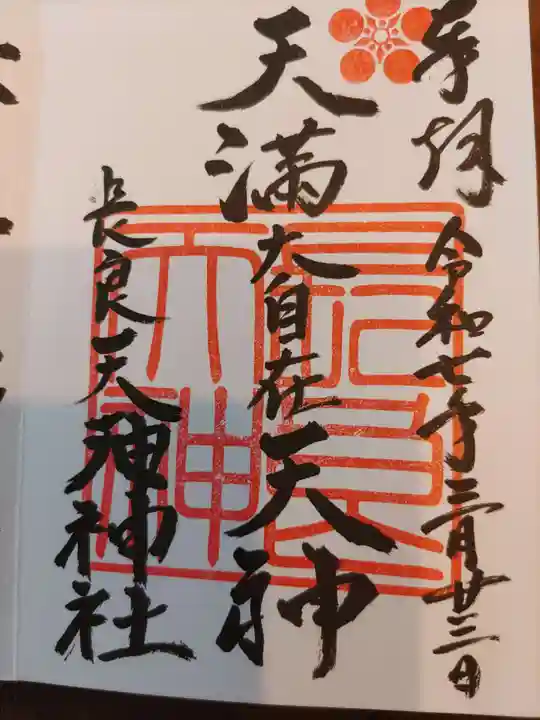 奉拝
令和七年三月廿三日
天満大自在天神
長良天神神社
長良天神